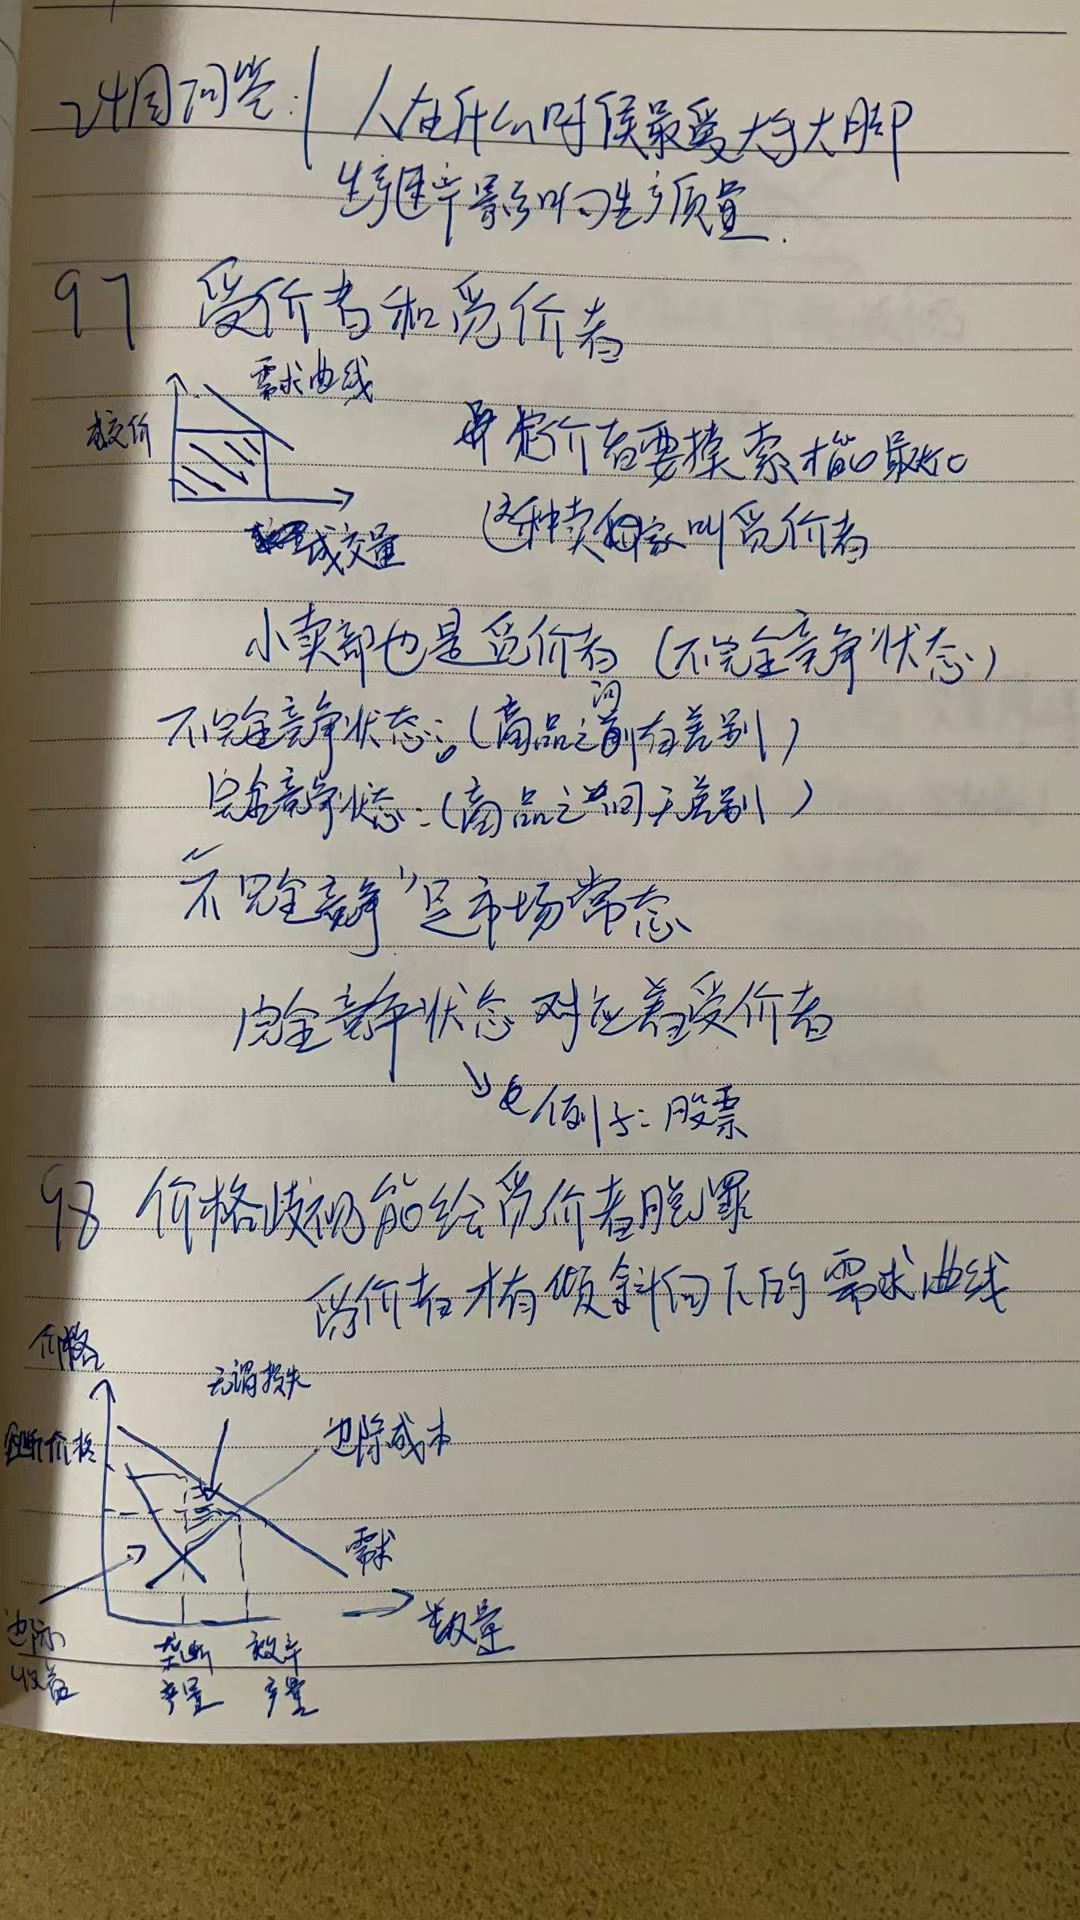 24周问答: 人在什么时候最爱大手大脚
生产速率影响生产质量.
97 受价者和觅价者
需求曲线
成交价
觅价者要摸索才能最大化
这种卖家叫觅价者
成交量
小卖部也是觅价者 (不完全竞争状态)
不完全竞争状态:(商品之间有差别)
完全竞争状态:(商品之间无差别)
"不完全竞争"是市场常态
完全竞争状态对应着受价者
例子:股票
98 价格歧视能给觅价者脱罪
觅价者才有倾斜向下的需求曲线
价格
无谓损失
垄断价格
边际成本
需求
数量
边际
收益
垄断
产量
效率
产量